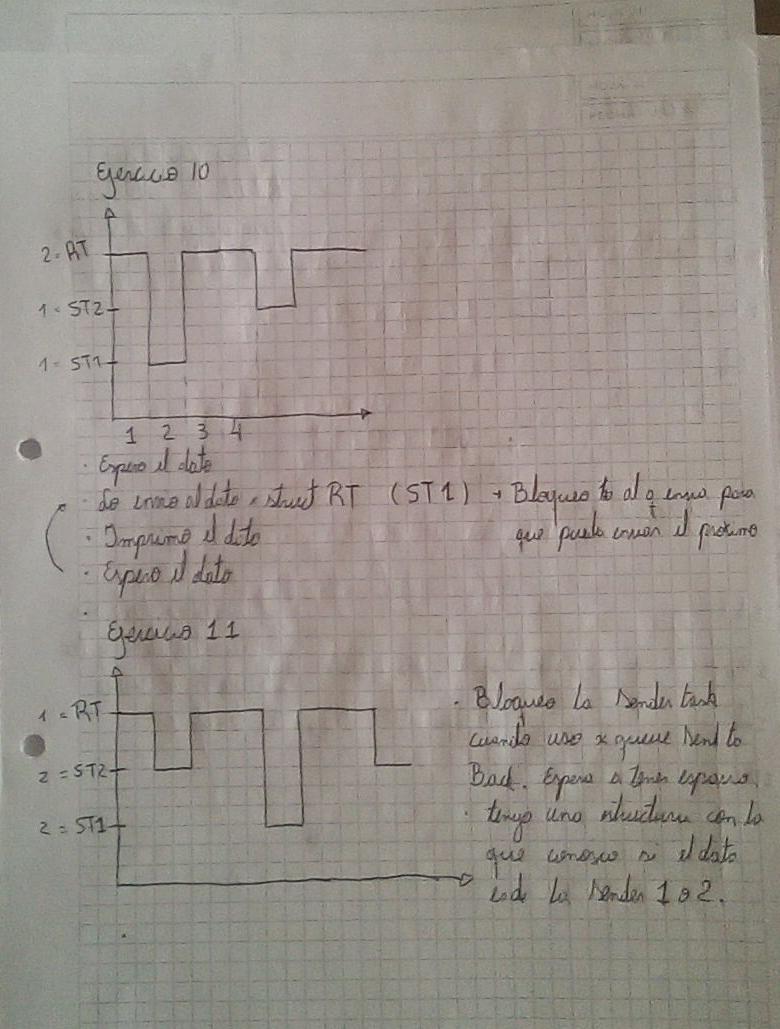 Ejercicio 10
2 = RT
1 = ST2
1 = ST1
1 2 3 4
· Espero el dato
· Lo envio al dato struct RT (ST1) → Bloqueo to al q envia para
que pueda enviar el proximo
· Imprimo el dato
· Espero el dato
·
Ejercicio 11
1 = RT
2 = ST2
2 = ST1
· Bloqueo la Sender task
cuando uso x queue Send to
Back. Espero a tener espacio.
· tengo una structura con la
que conosco si el dato
es de la Sender 1 o 2.